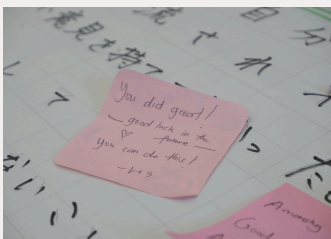 意見を持て
流され
自分
You did great!
good luck in the
future
You can do this!
Amazing
Good